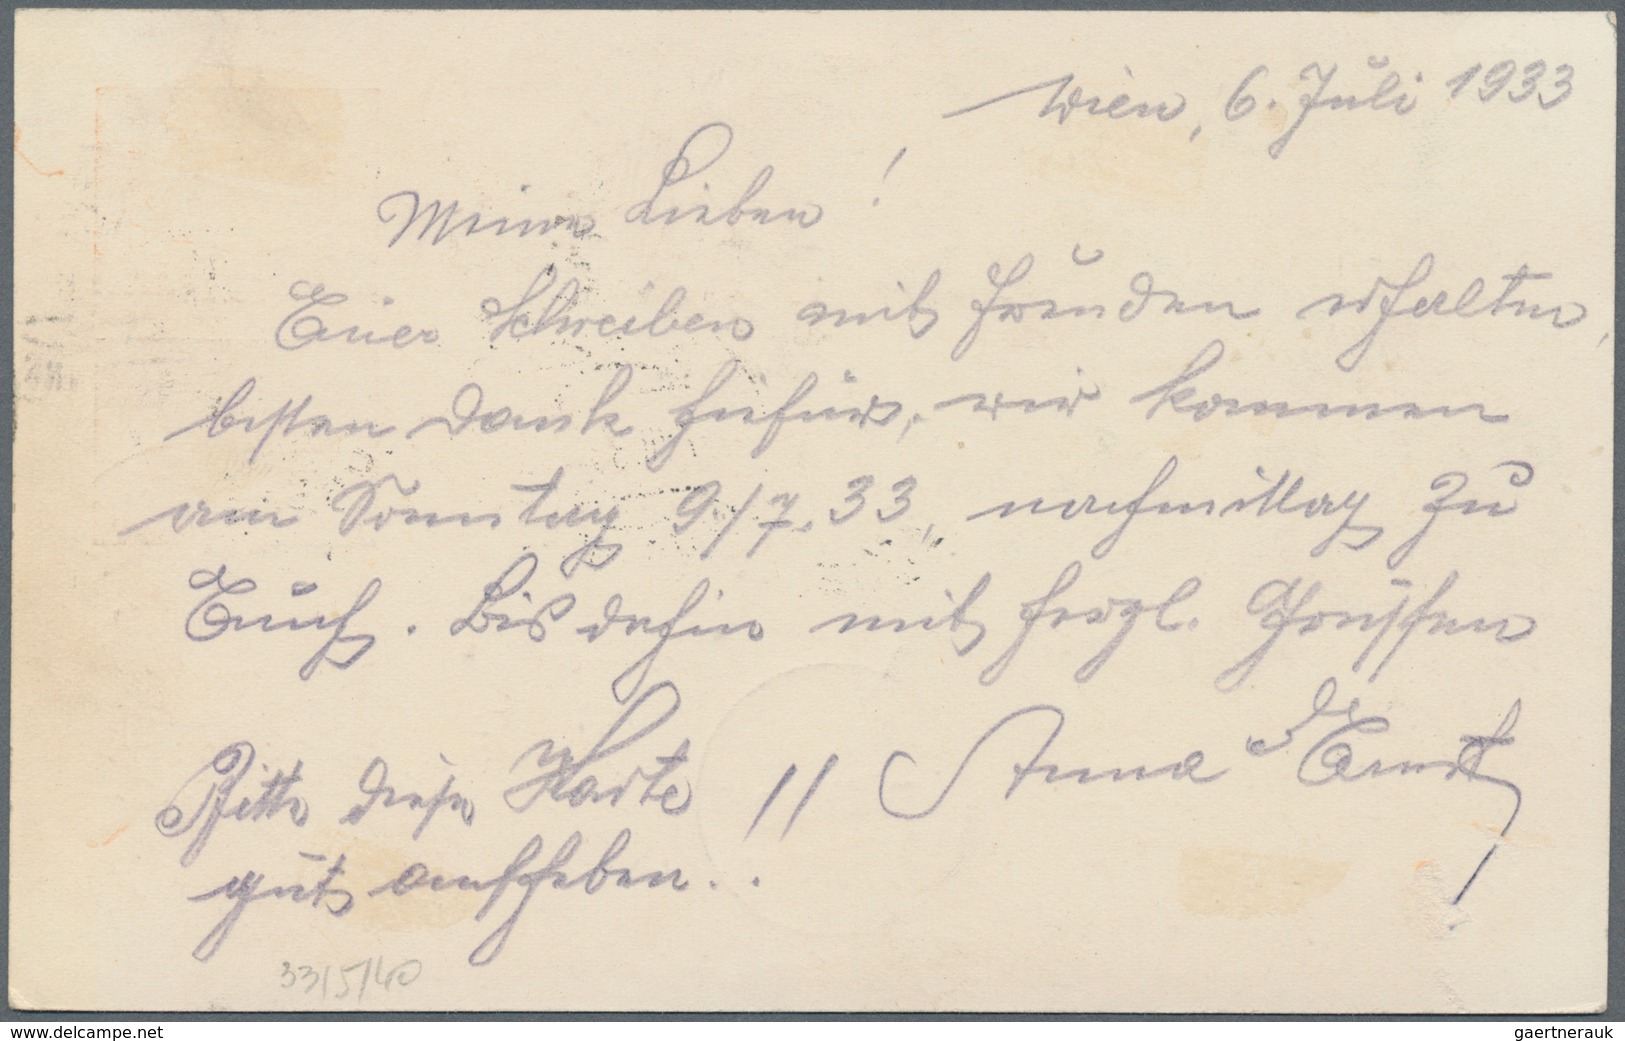 Wien, 6. Juli 1933
Meine Lieben!
Euer Schreiben mit Freuden erhalten,
besten Dank hiefür, wir kommen
am Sonntag 9/7.33, nachmittag zu
Euch. Bis dahin mit herzl. Grüssen
Anna Ernst
Bitte diese Karte //
gut aufheben..
33/5/40
www.delcampe.net
gaertnerauk